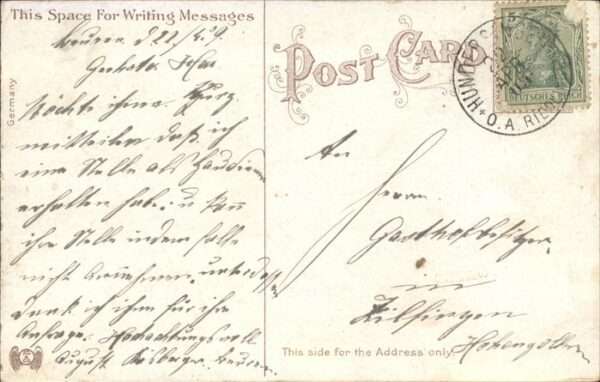 This Space For Writing Messages
Beuren d 22/5.9.
Geehrter Herr
Möchte ihnen kurz
mitteilen daß ich
eine Stelle als Hausdiener
erhalten habe. u kann
ihre Stelle in dem falle
nicht annehmen. unterdessen
dank ich ihnen für ihre
Anfrage. Hochachtungsvoll
August
Germany
POST CARD
5
DEUTSCHES REICH
O.A. RIED
An
Herrn
Gasthofbesitzer
in
Hohenzollern
This side for the Address only.